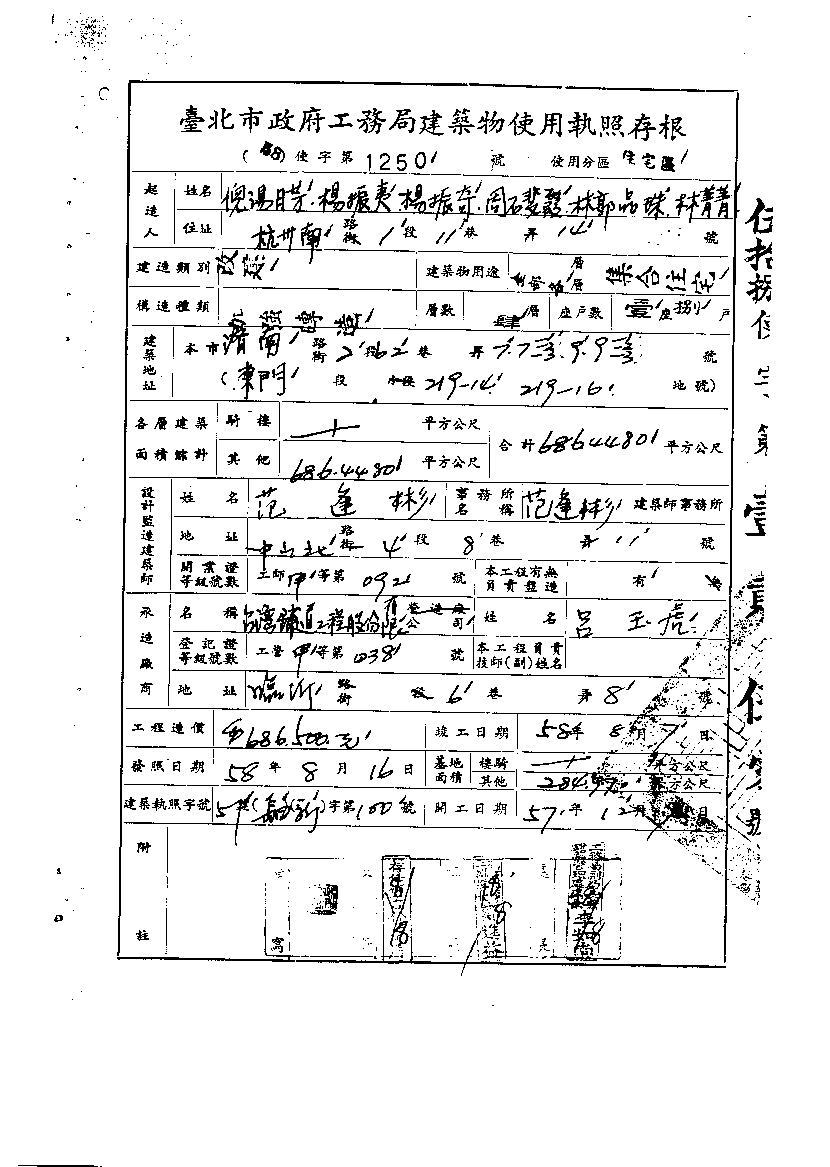 臺北市政府工務局建築物使用執照存根
(58) 使字第 1250 號 使用分區 住宅區
起造人 姓名 倪湯月芳 楊振夷 楊振奇 周石 林郭品珠 林菁菁
住址 杭州南 路街 1 段 11 巷 弄 14 號
建造類別 改建 建築物用途 層層 集合住宅
構造種類 層數 肆 層 座戶數 壹 座 捌 戶
建築地址 本市 濟南 路街 2 段 62 巷 弄 7. 7之3. 9. 9之3 號
(東門 段 小段 219-14 219-16 地號)
各層建築面積總計 騎樓 平方公尺 合計 686.44801 平方公尺
其他 686.44801 平方公尺
設計監造建築師 姓名 范逢彬 事務所名稱 范逢彬 建築師事務所
地址 中山北 路街 4 段 8 巷 弄 11 號
開業證等級號數 工師 甲 等第 092 號 本工程有無負責監造 有 無
承造廠商 名稱 台灣鋪道工程股份有限 營造廠公司 姓名 呂玉虎
登記證等級號數 工營 甲 等第 038 號 本工程負責技師(副)姓名
地址 臨沂 路街 段 6 巷 弄 8 號
工程造價 686,500.元 竣工日期 58 年 8 月 7 日
發照日期 58 年 8 月 16 日 基地面積 樓騎 平方公尺
其他 平方公尺
建築執照字號 57 字第 100 號 開工日期 57 年 12 月 日
附註
伍拾捌使字第壹貳伍零號